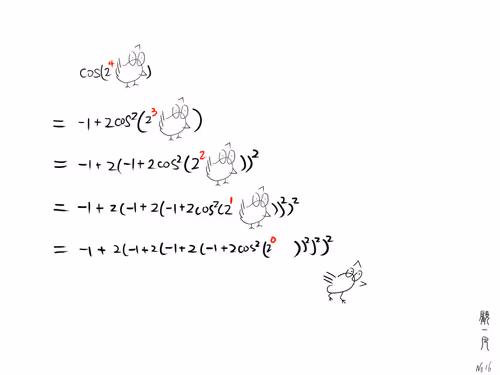 cos(2⁴ )
= -1+2cos²(2³ )
= -1+2(-1+2cos²(2² ))²
= -1+2(-1+2(-1+2cos²(2¹ ))²)²
= -1+2(-1+2(-1+2(-1+2cos²(2⁰ ))²)²)²
顧一民